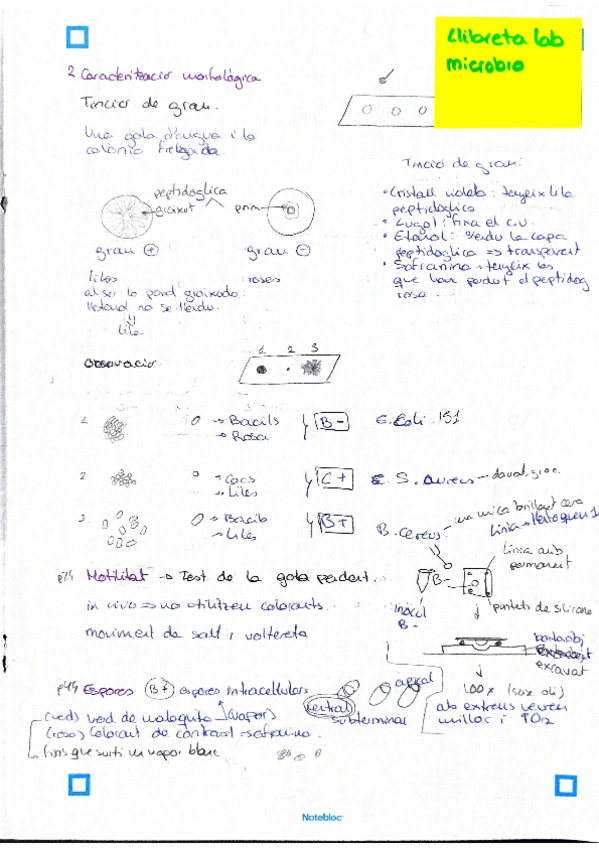 Llibreta lab
microbio
2 Caracterització morfològica
Tinció de gran.
Una gota d'aigua i la
colònia fregada.
Tinció de gran:
• Cristall violeta: tenyeix lila
peptidoglica
• Lugol: fixa el c.v.
• Etanol:
peptidoglica => transparent
• Safranina → tenyeix les
que han perdut el peptidog
rosa.
peptidoglica
groixut
prim
gram +
gram -
liles
roses
al ser la pard groixuda
l'etanol no se
lila.
Observació
1 2 3
1.
→ Bacils
→ Rosa
B-
E. Coli 151
2.
→ Cocs
→ Liles
C+
S. Aureus — daurat, groc
3.
→ Bacils
→ Liles
B+
B. Cereus
una mica brillant cera
p24 Motilitat → Test de la gota pendent.
B-
Linia amb
permanent
inòcul
B-
puntets de silicona
in vivo => no utilitzem colorants
moviment de salt i voltereta
portaobj
excavat
100x (sense oli)
als extrems veurem
millor i ↑O2
p44 Espores B+ espores intracellulars
central
subterminal
apical
(verd) verd de malaquita (vapor)
(rosa) Colorant de contrast - safranina.
fins que surti un vapor blanc
Notebloc